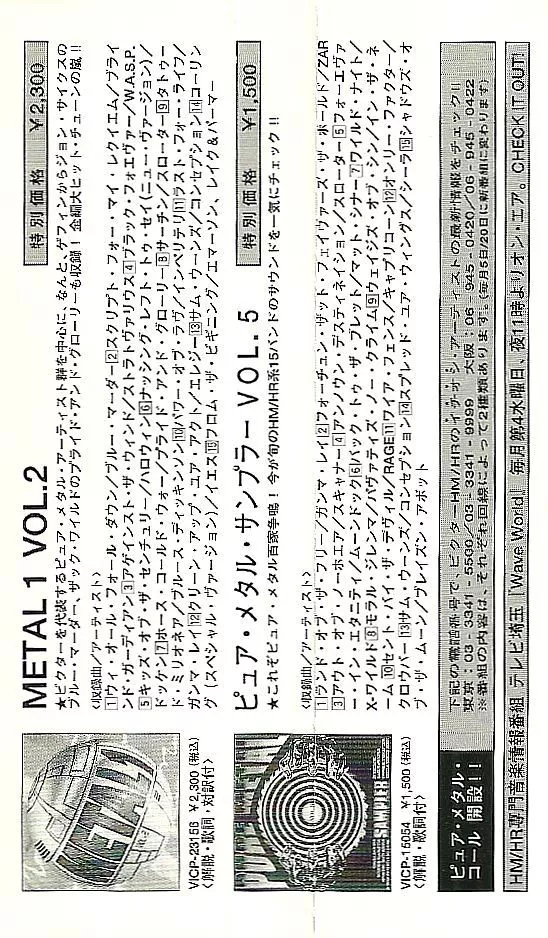 METAL 1 VOL.2
特別価格 ¥2,300
★ビクターを代表するピュア・メタル・アーティスト群を中心に、なんと、ゲフィンからジョン・サイクスの
ブルー・マーダー、ザック・ワイルドのプライド・アンド・グローリーも収録！金縁大ヒット・チューンの嵐!!
〈収録曲/アーティスト〉
1ウィ・オール・フォール・ダウン/ブルー・マーダー2スクリプト・フォー・マイ・レクイエム/ブライ
ンド・ガーディアン3アゲインスト・ザ・ウィンド/ストラトヴァリウス4ブラック・フォエヴァー/W.A.S.P.
5キッズ・オブ・ザ・センチュリー/ハロウィン6ナッシング・レフト・トゥ・セイ(ニュー・ヴァージョン)/
ドッケン7ホース・コールド・ウォー/プライド・アンド・グローリー8サーチン/スローター9タトゥー
ド・ミリオネア/ブルース・ディッキンソン10パワー・オブ・ラヴ/インペリテリ11ラスト・フォー・ライフ/
ガンマ・レイ12クリーン・アップ・ユア・アクト/エレジー13サム・ウーンズ/コンセプション14コーリン
グ(スペシャル・ヴァージョン)/イエス15フロム・ザ・ビギニング/エマーソン、レイク&パーマー
METAL
VICP-23156 ¥2,300(税込)
〈解説・歌詞・対訳付〉
ピュア・メタル・サンプラー VOL.5
特別価格 ¥1,500
★これぞピュア・メタル百家争鳴！今が旬のHM/HR系15バンドのサウンドを一気にチェック!!
〈収録曲/アーティスト〉
1ランド・オブ・ザ・フリー/ガンマ・レイ2フォーチュン・ザット・フェイヴァーズ・ザ・ボールド/ZAR
3アウト・オブ・ノーホエア/スキャナー4アンノウン・デスティネイション/スローター5フォーエヴァ
ー・イン・エタニティ/ムーンドック6バック・トゥ・ザ・ブレット/マット・シナー7ワイルド・ナイト/
X-ワイルド8モラル・ジレンマ/パヴァティズ・ノー・クライム9ウェイジズ・オブ・シン/イン・ザ・ネ
ーム10セント・バイ・ザ・デヴィル/RAGE11ワイア・フェンス/キャプリコーン12オンリー・ファクター/
クロウバー13サム・ウーンズ/コンセプション14スプレッド・ユア・ウィングス/シーラ15シャドウズ・オ
ブ・ザ・ムーン/ブレイズン・アボット
SAMPLER
VICP-15054 ¥1,500(税込)
〈解説・歌詞付〉
ピュア・メタル・
コール 開設!!
下記の電話番号で、ビクターHM/HRのイチオシ・アーティストの最新情報をチェック!!
東京：03-3341-5500/03-3341-9999 大阪：06-945-0420/06-945-0422
※番組の内容は、それぞれ回線によって2種類あります。(毎月5/20日に新番組に変わります)
HM/HR専門音楽情報番組 テレビ埼玉「Wave World」毎月第4水曜日、夜11時よりオン・エア。CHECK IT OUT!